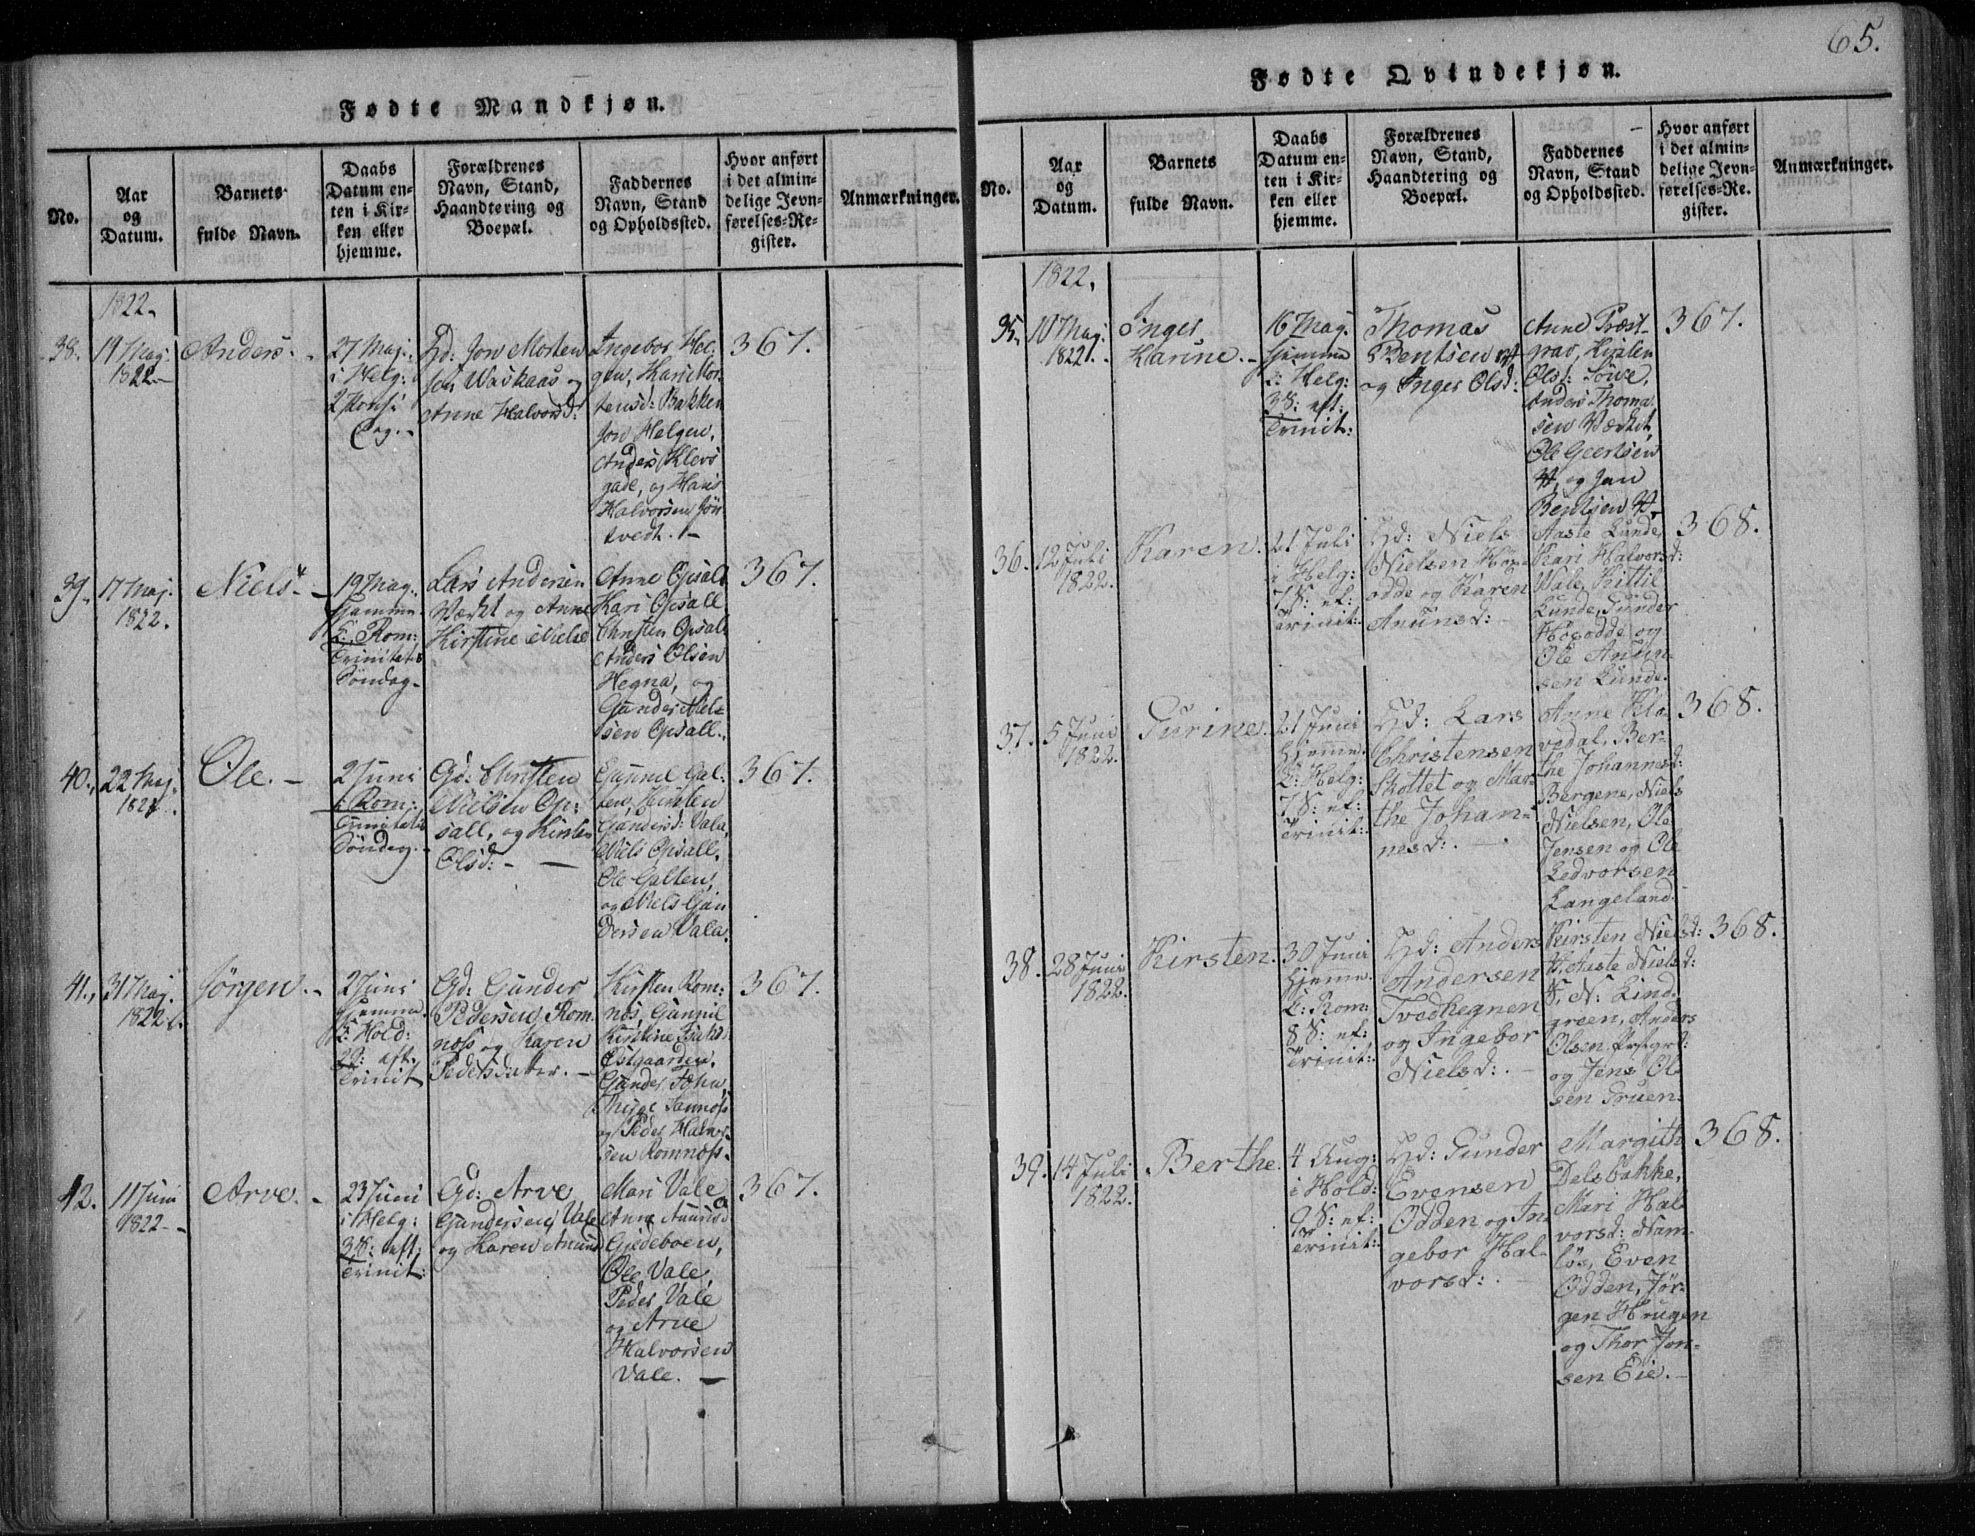 65.
Fødte Mandkjøn.
No.
Aar
og
Datum.
Barnets
fulde Navn.
Daabs
Datum en-
ten i Kir-
ken eller
hjemme.
Forældrenes
Navn, Stand,
Haandtering og
Boepæl.
Faddernes
Navn, Stand
og Opholdssted.
Hvor anført
i det almin-
delige Jevn-
førelses-Re-
gister.
Anmærkninger.
1822.
38.
19 Maj.
1822.
Anders.
27 Maj.
i Helg:
2 Pintse
Dag.
Gd: Jon Morten
sen Waskaas og
Anne Halvorsd:
Ingebor Hel-
gen, Kari Mor-
tensd: Bakken
Jon Helgen,
Anders Klevs
gade, og Hans
Halvorsen Jön
tvedt.
367.
39.
17 Maj.
1822.
Niels.
19 Maj.
hjemme
i Rom:
Trinitat:
Söndag.
Lars Andersen
Værket og Anne
Kirstine Nielsd
Anne Opsall
Kari Opsall
Christen Opsall
Anders Olsen
Hegna, og
Gunder Niel-
sen Opsall.
367.
40.
22 Maj.
1822.
Ole.
2 Juni
i Rom:
Trinitatis
Söndag.
Gd: Christen
Nielsen Op-
sall, og Kirsten
Olsd:
Gunnil Gal-
ten, Kirsten
Gundersd: Vala,
Niels Opsall,
Ole Galten,
og Niels Gun
dersen Vala.
367.
41.
31 Maj.
1822.
Jörgen.
2 Juni
hjemme
i Hold:
2S: eft.
Trinit
Gd: Gunder
Pedersen Rom
noss og Karen
Pedersdatter.
Kirsten Rom-
nos, Gunnil
Kirstine
Ostgaarden,
Gunder John,
Thyge Sannoss
og Peder Halvor-
sen Romnoss.
367.
42.
11 Juni
1822.
Arve.
23 Juni
i Helg:
3S: eft:
Trinit:
Gd: Arve
Gundersen Vale
og Karen Anund
Mari Vale
Anne Anunds
Gjedeboen,
Ole Vale,
Peder Vale
og Arve
Halvorsen
Vale.
367.
Fødte Qvindekjøn.
No.
Aar
og
Datum.
Barnets
fulde Navn.
Daabs
Datum en-
ten i Kir-
ken eller
hjemme.
Forældrenes
Navn, Stand,
Haandtering og
Boepæl.
Faddernes
Navn, Stand
og Opholdssted.
Hvor anført
i det almin-
delige Jevn-
førelses-Re-
gister.
Anmærkninger.
1822.
35.
10 Maj.
1822.
Inger
Karine.
16 Maj.
hjemme
i Helg:
3S: eft:
Trinit:
Thomas
Bentsen
og Inger Olsd:
Anne Præst-
grav, Kirsten
Olsd: Söwe,
Anders Thoma
sen Værket,
Ole Geertsen
og Jan
Bentsen
367.
36.
12 Juli
1822.
Karen.
21 Juli
i Helg:
7S: ef:
Trinit:
Hd: Niels
Nielsen Hög-
odde og Karen
Anunsd:
Aaste Lunde,
Kari Halvorsd:
Vale, Kittil
Lunde, Gunder
Högodde og
Ole Anun-
sen Lunde.
368.
37.
5 Juni
1822.
Gurine.
21 Juni
hjemme.
i Helg:
7S: ef:
Trinit:
Hd: Lars
Christensen
Skottet og Mar-
the Johan-
nesd:
Anne Klo
vedal, Ber-
the Johannesd:
Bergene, Niels
Nielsen, Ole
Jensen og Ole
Ledvorsen
Langeland.
368.
38.
28 Juni
1822.
Kirsten.
30 Juni
hjemme
i Rom:
8S: ef:
Trinit:
Hd: Anders
Andersen
Tvedhegnen
og Ingebor
Nielsd:
Kirsten Nielsd:
Aaste Nielsd:
N: Lind-
green, Anders
Olsen Prstgrd:
og Jens Ol-
sen Gruen.
368.
39.
14 Juli
1822.
Berthe.
4 Aug:
i Hold:
9S: ef:
Trinit:
Hd: Gunder
Evensen
Odden og In-
gebor Hal-
vorsd:
Margith
Dalsbakke,
Mari Hal-
vorsd: Nam-
lös, Even
Odden, Jör-
gen Haugen
og Thor Jon-
sen Eie.
368.